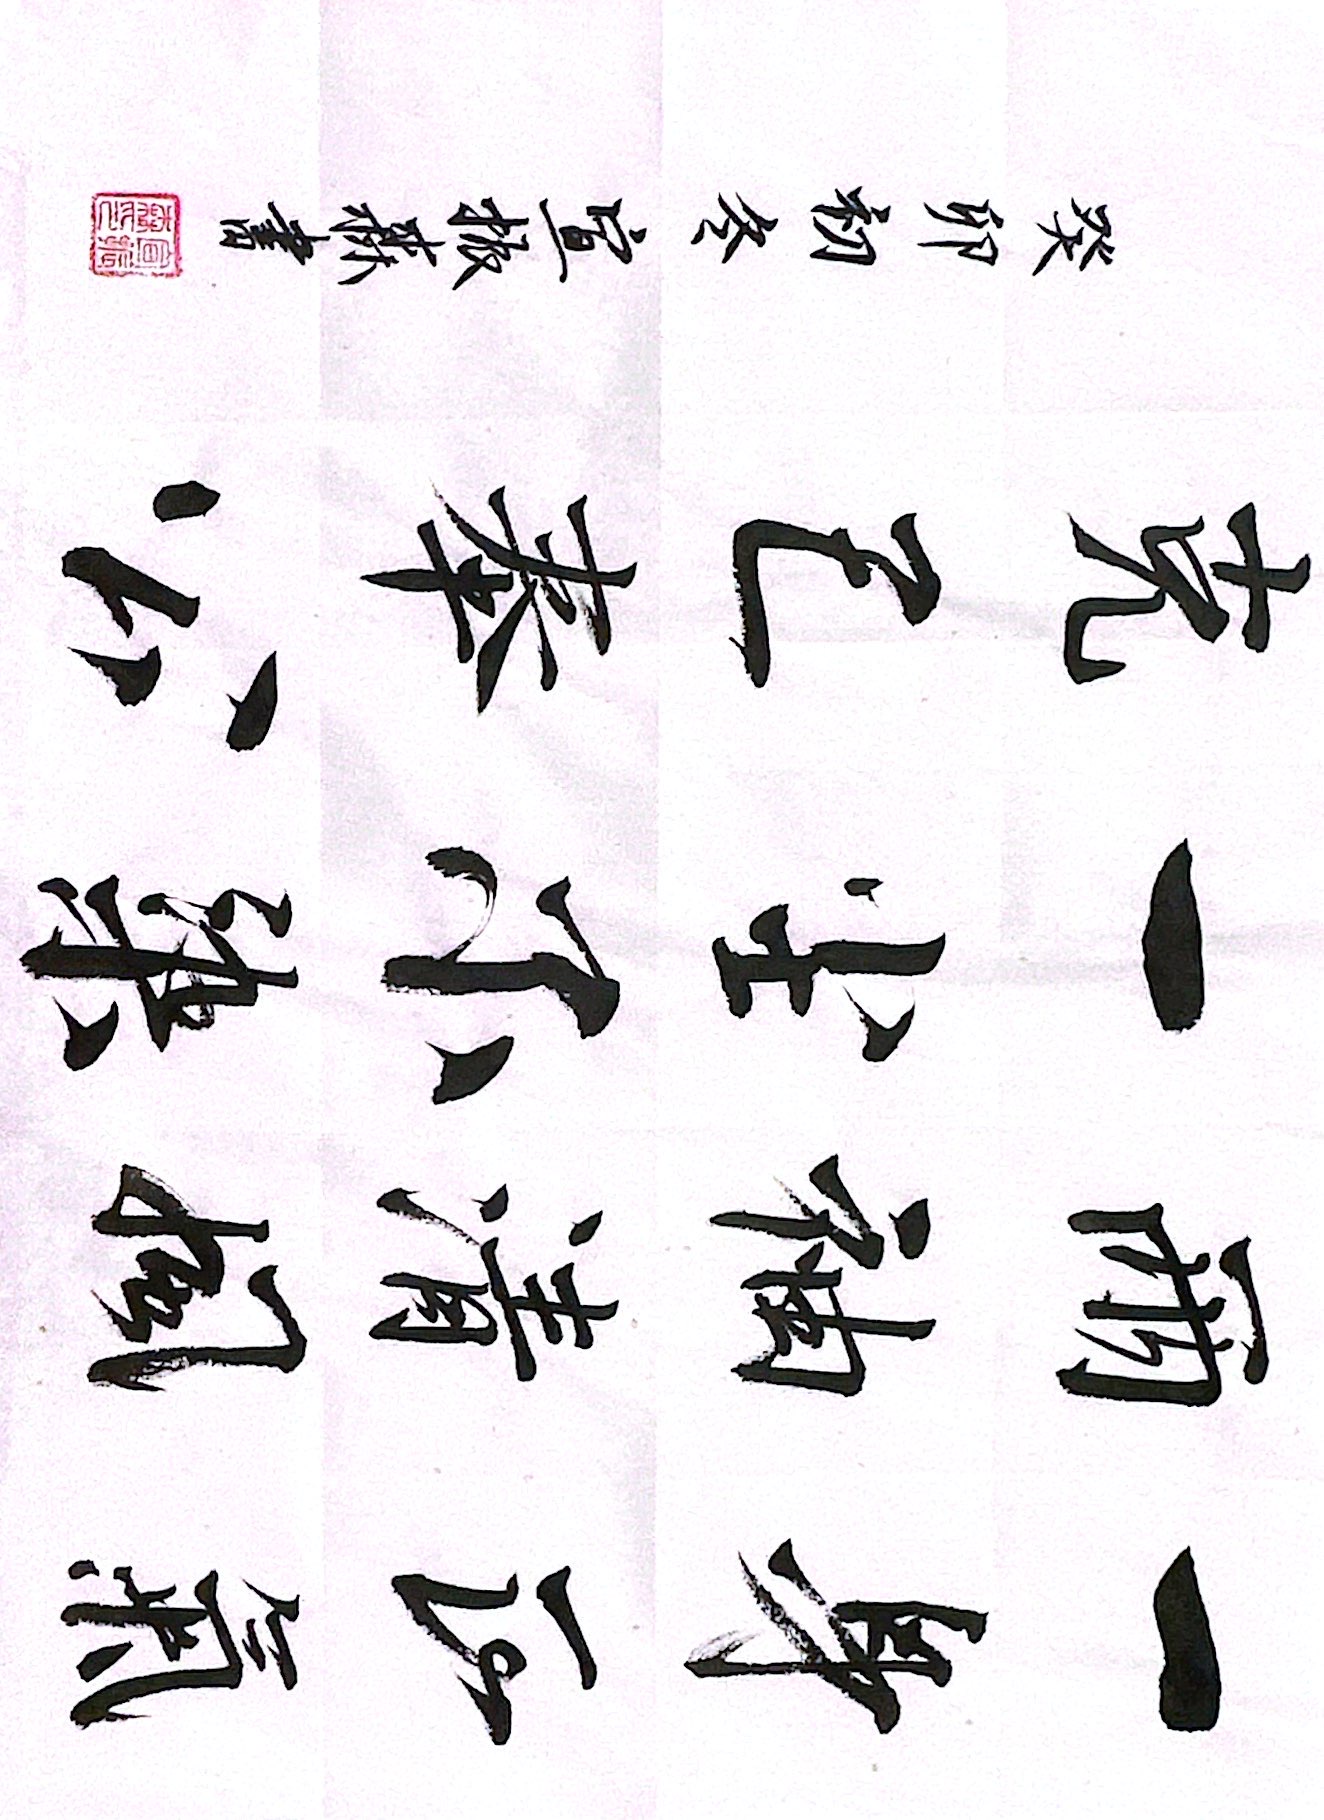 一身正氣
兩袖清風
一尘不染
克己奉公
癸卯初冬宣振書